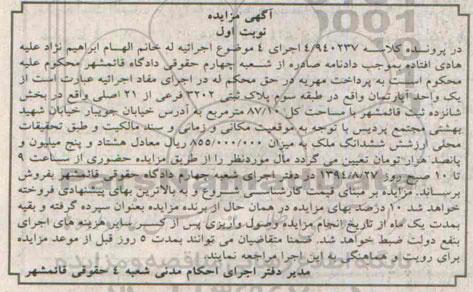 آگهی مزایده
نوبت اول
در پرونده کلاسه ۴/۹۴۰۲۳۷ اجرای ۴ موضوع اجرائیه له خانم الهام ابراهیم نژاد علیه
هادی افتاده بموجب دادنامه صادره از شعبه چهارم حقوقی دادگاه قائمشهر محکوم علیه
محکوم است به پرداخت مهریه در حق محکم له در اجرای مفاد اجرائیه عبارت است از
یک واحد آپارتمان واقع در طبقه سوم پلاک ثبتی ۳۲۰۲ فرعی از ۲۱ اصلی واقع در بخش
شانزده ثبت قائمشهر با مساحت کل ۸۷/۱۰ مترمربع به آدرس خیابان جویبار خیابان شهید
بهشتی مجتمع پردیس با توجه به موقعیت مکانی و زمانی و سند مالکیت و طبق تحقیقات
محلی ارزش ششدانگ ملک به میزان ۸۵۵/۰۰۰/۰۰۰ ریال معادل هشتاد و پنج میلیون و
پانصد هزار تومان تعیین می گردد مال موردنظر را از طریق مزایده حضوری از ساعت ۹
تا ۱۰ صبح روز ۱۳۹۴/۸/۲۷ در دفتر اجرای شعبه چهارم دادگاه حقوقی قائمشهر بفروش
برساند. مزایده بر مبنای قیمت کارشناسی شروع و به بالاترین بهای پیشنهادی فروخته
خواهد شد ۱۰ درصد بهای مزایده در همان حال از برنده مزایده بعنوان سپرده گرفته و بقیه
بمدت یک ماه از تاریخ انجام مزایده وصول واریزی پس از کسر سایر هزینه های اجرای
بنفع دولت ضبط خواهد شد. ضمنا متقاضیان می توانند بمدت ۵ روز قبل از موعد مزایده
برای رویت و هماهنگی به این اجرا مراجعه نمایند.
مدیر دفتر اجرای احکام مدنی شعبه ۴ حقوقی قائمشهر